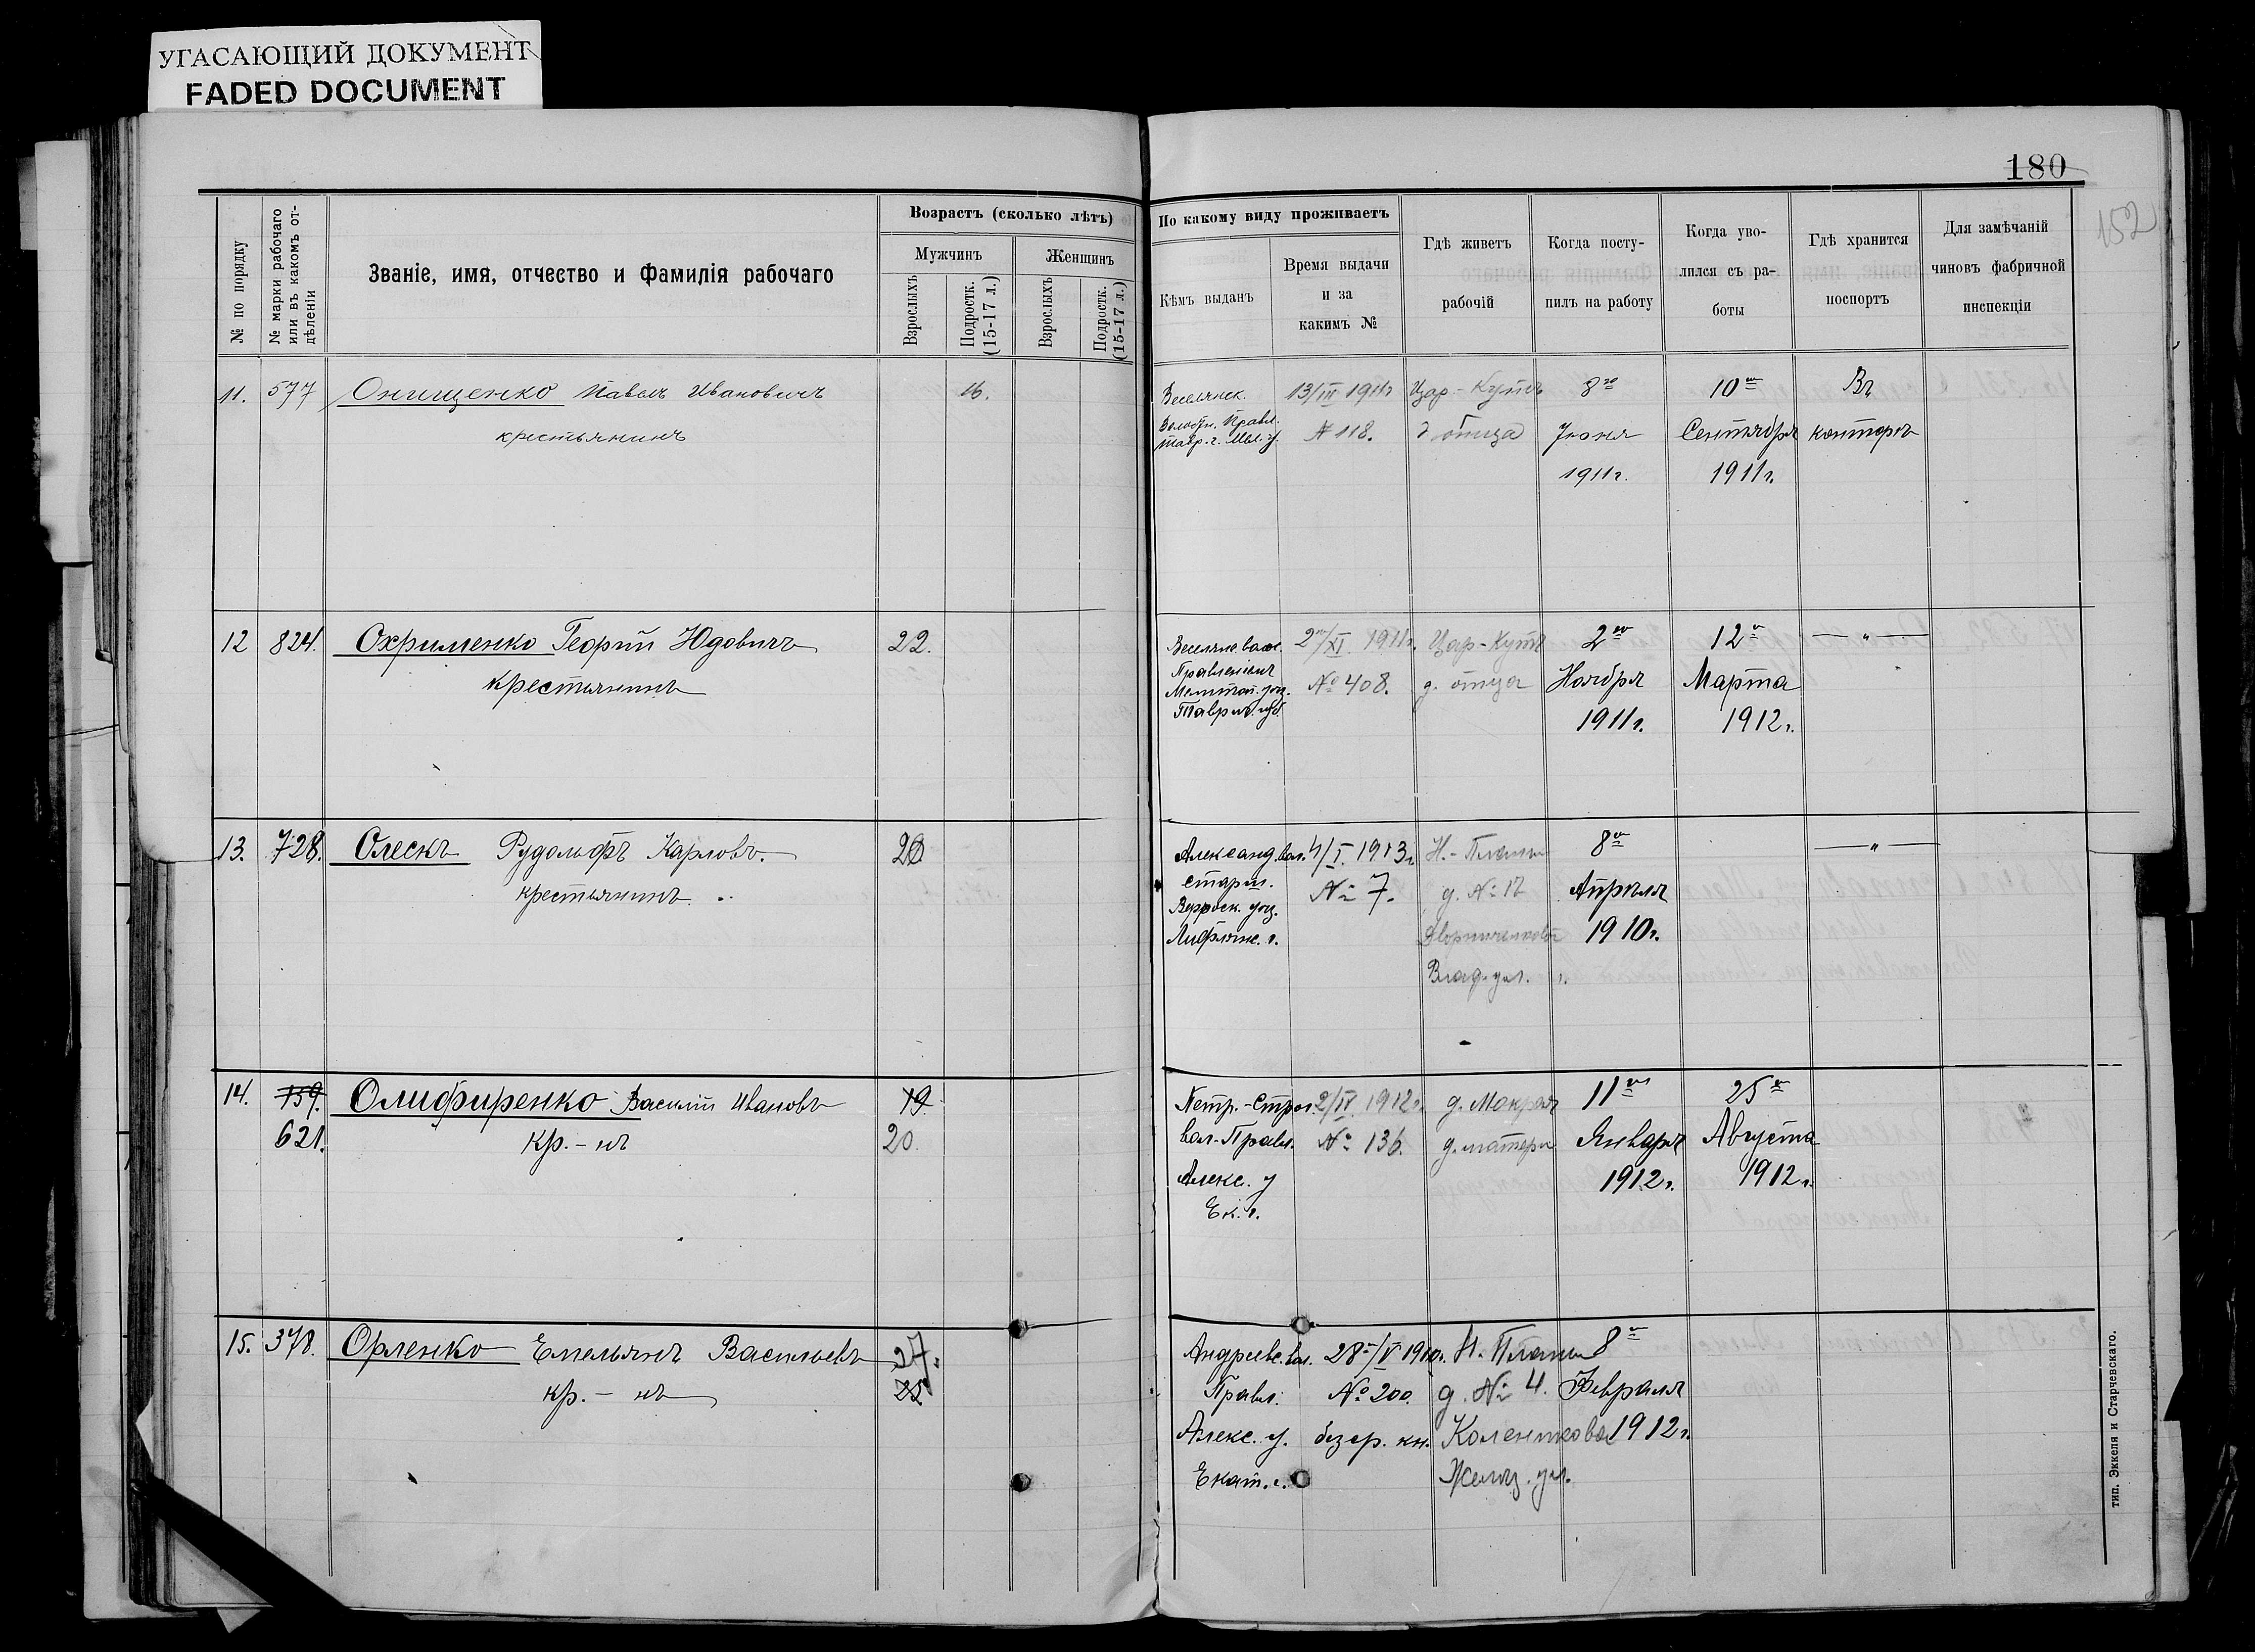 УГАСАЮЩИЙ ДОКУМЕНТ
FADED DOCUMENT
180
152
№ по порядку
№ марки рабочаго
или въ какомъ от-
дѣленіи
Званіе, имя, отчество и фамилія рабочаго
Возрастъ (сколько лѣтъ)
Мужчинъ
Женщинъ
Взрослыхъ
Подростк.
(15-17 л.)
Взрослыхъ
Подростк.
(15-17 л.)
По какому виду проживаетъ
Кѣмъ выданъ
Время выдачи
и за
какимъ №
Гдѣ живетъ
рабочій
Когда посту-
пилъ на работу
Когда уво-
лился съ ра-
боты
Гдѣ хранится
поспортъ
Для замѣчаній
чиновъ фабричной
инспекціи
11. 577 Онищенко Павелъ Ивановичъ 16.
крестьянинъ
Веселянск.
Волостн. Правл.
Тавр. г. Мел. у.
13/III 1911г
№ 118.
Цар-Кутъ
д отца
8го
Іюня
1911г.
10го
Сентября
1911г.
Въ
конторѣ
12 824. Охрименко Георгій Юдовичъ 22.
крестьянинъ
Веселянс. вол.
Правленіемъ
Мелитоп. уѣз.
Таврич. губ.
2го/XI 1911г.
№ 408.
Цар-Кутъ
д. отца
2го
Ноября
1911г.
12го
Марта
1912г.
— „ —
13. 728. Олескъ Рудольфъ Карловъ.
крестьянинъ.
Александ. вол.
старш.
Верроск. уѣз.
Лифлянс. г.
4/I 1913г
№ 7.
Н.-Планъ
д. № 12
Влад. ул.
8го
Апрѣля
1910г.
— „ —
14. 159. Олифиренко Василій Ивановъ 19
621. кр.-нъ 20
Петр.-Строг.
вол. Правл.
Алекс. у
Ек. г.
2/IV 1912г.
№ 136.
д. Мокрая
д. матери
11го
Января
1912г.
25го
Августа
1912г.
15. 378. Орленко Емельянъ Васильевъ 27.
кр. – нъ 22
Андреевс. вол.
Правл.
Алекс. у.
Екат. г.
28го/V 1910г.
№ 200
безср. кн.
Н. Планъ
д. № 4.
Желѣз. ул.
8го
Февраля
1912г.
тип. Эккеля и Старчевскаго.